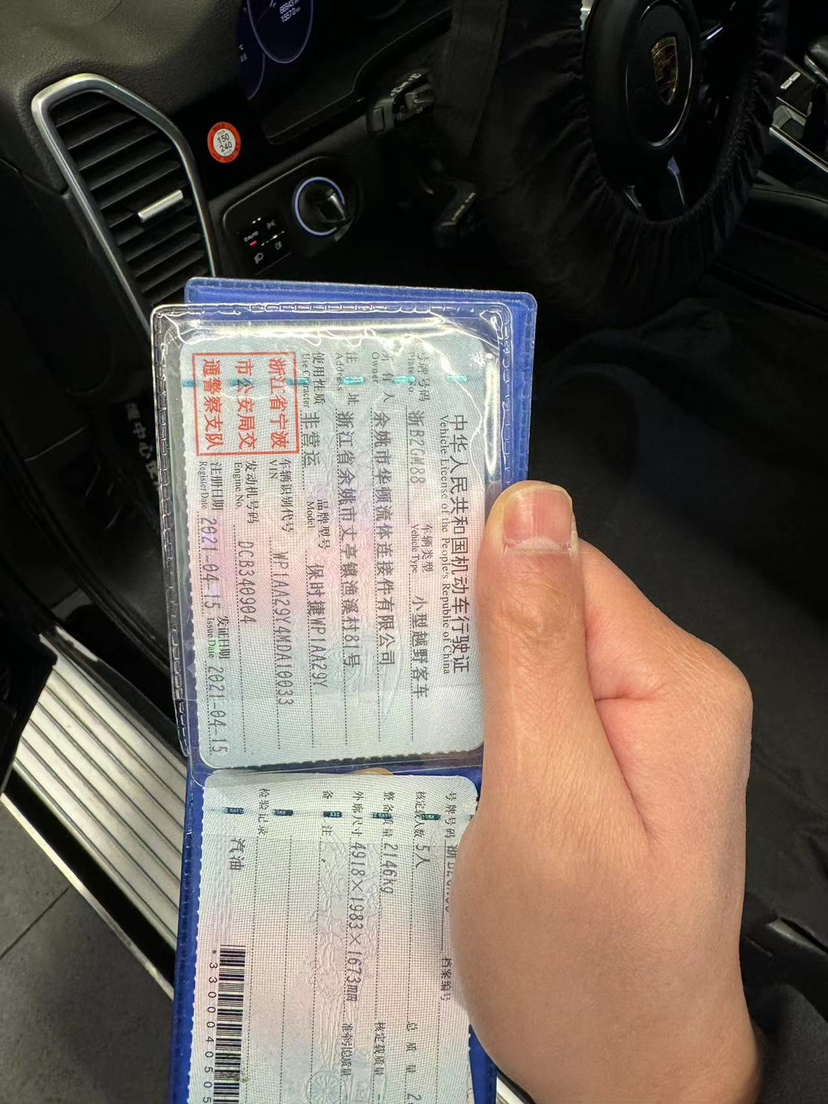 中华人民共和国机动车行驶证
Vehicle License of the People's Republic of China
号牌号码 浙B2GM88 车辆类型 小型越野客车
Plate No. Vehicle Type
所有人 余姚市华顿流体连接件有限公司
Owner
住址 浙江省余姚市丈亭镇渔溪村81号
Address
使用性质 非营运 品牌型号 保时捷WP1AA29Y
Use Character Model
浙江省宁波
市公安局交
通警察支队
车辆识别代号 WP1AA29Y4MDA10033
VIN
发动机号码 DCB340904
Engine No.
注册日期 2021-04-15 发证日期 2021-04-15
Register Date Issue Date
号牌号码 档案编号
核定载人数 5人 总质量
整备质量 2146kg 核定载质量
外廓尺寸 4918×1983×1673mm 准牵引总质量
备注
检验记录
汽油
*3300040505